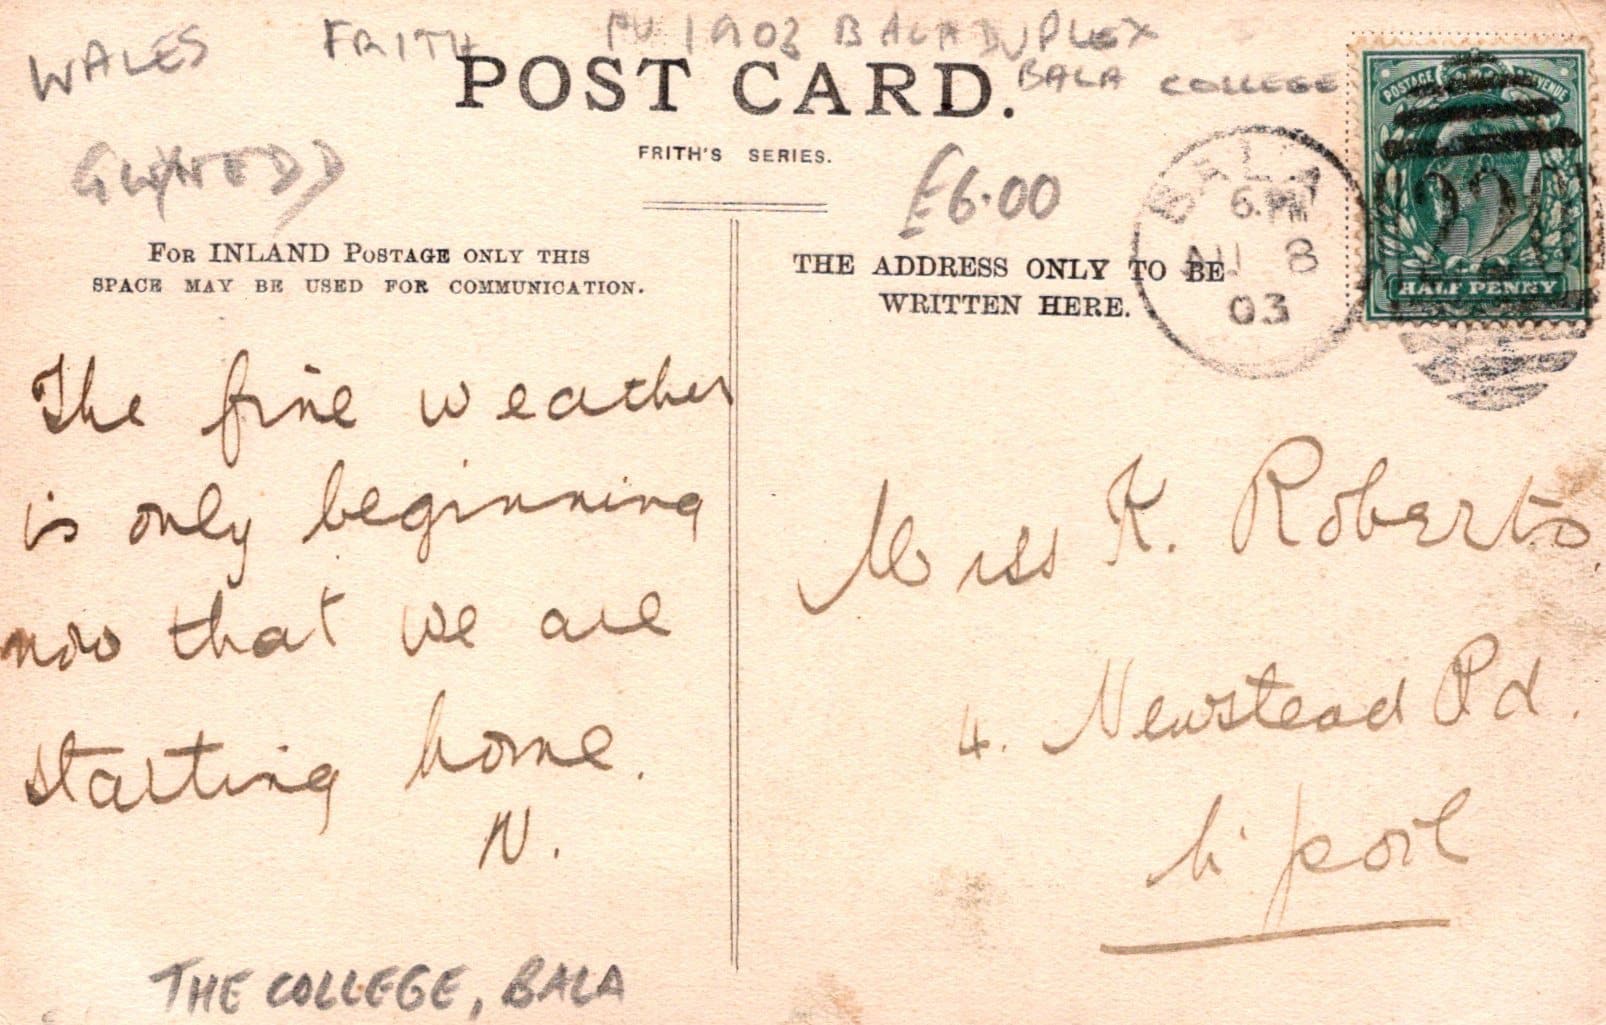 WALES FRITH PU 1903 BALA DUPLEX
BALA COLLEGE
POST CARD.
FRITH'S SERIES.
£6.00
FOR INLAND POSTAGE ONLY THIS
SPACE MAY BE USED FOR COMMUNICATION.
THE ADDRESS ONLY TO BE
WRITTEN HERE.
BALA
6.PM
AU 8
03
POSTAGE REVENUE
HALF PENNY
The fine weather
is only beginning
now that we are
starting home.
N.
Miss K. Roberts
4. Newstead Rd.
L'pool
THE COLLEGE, BALA